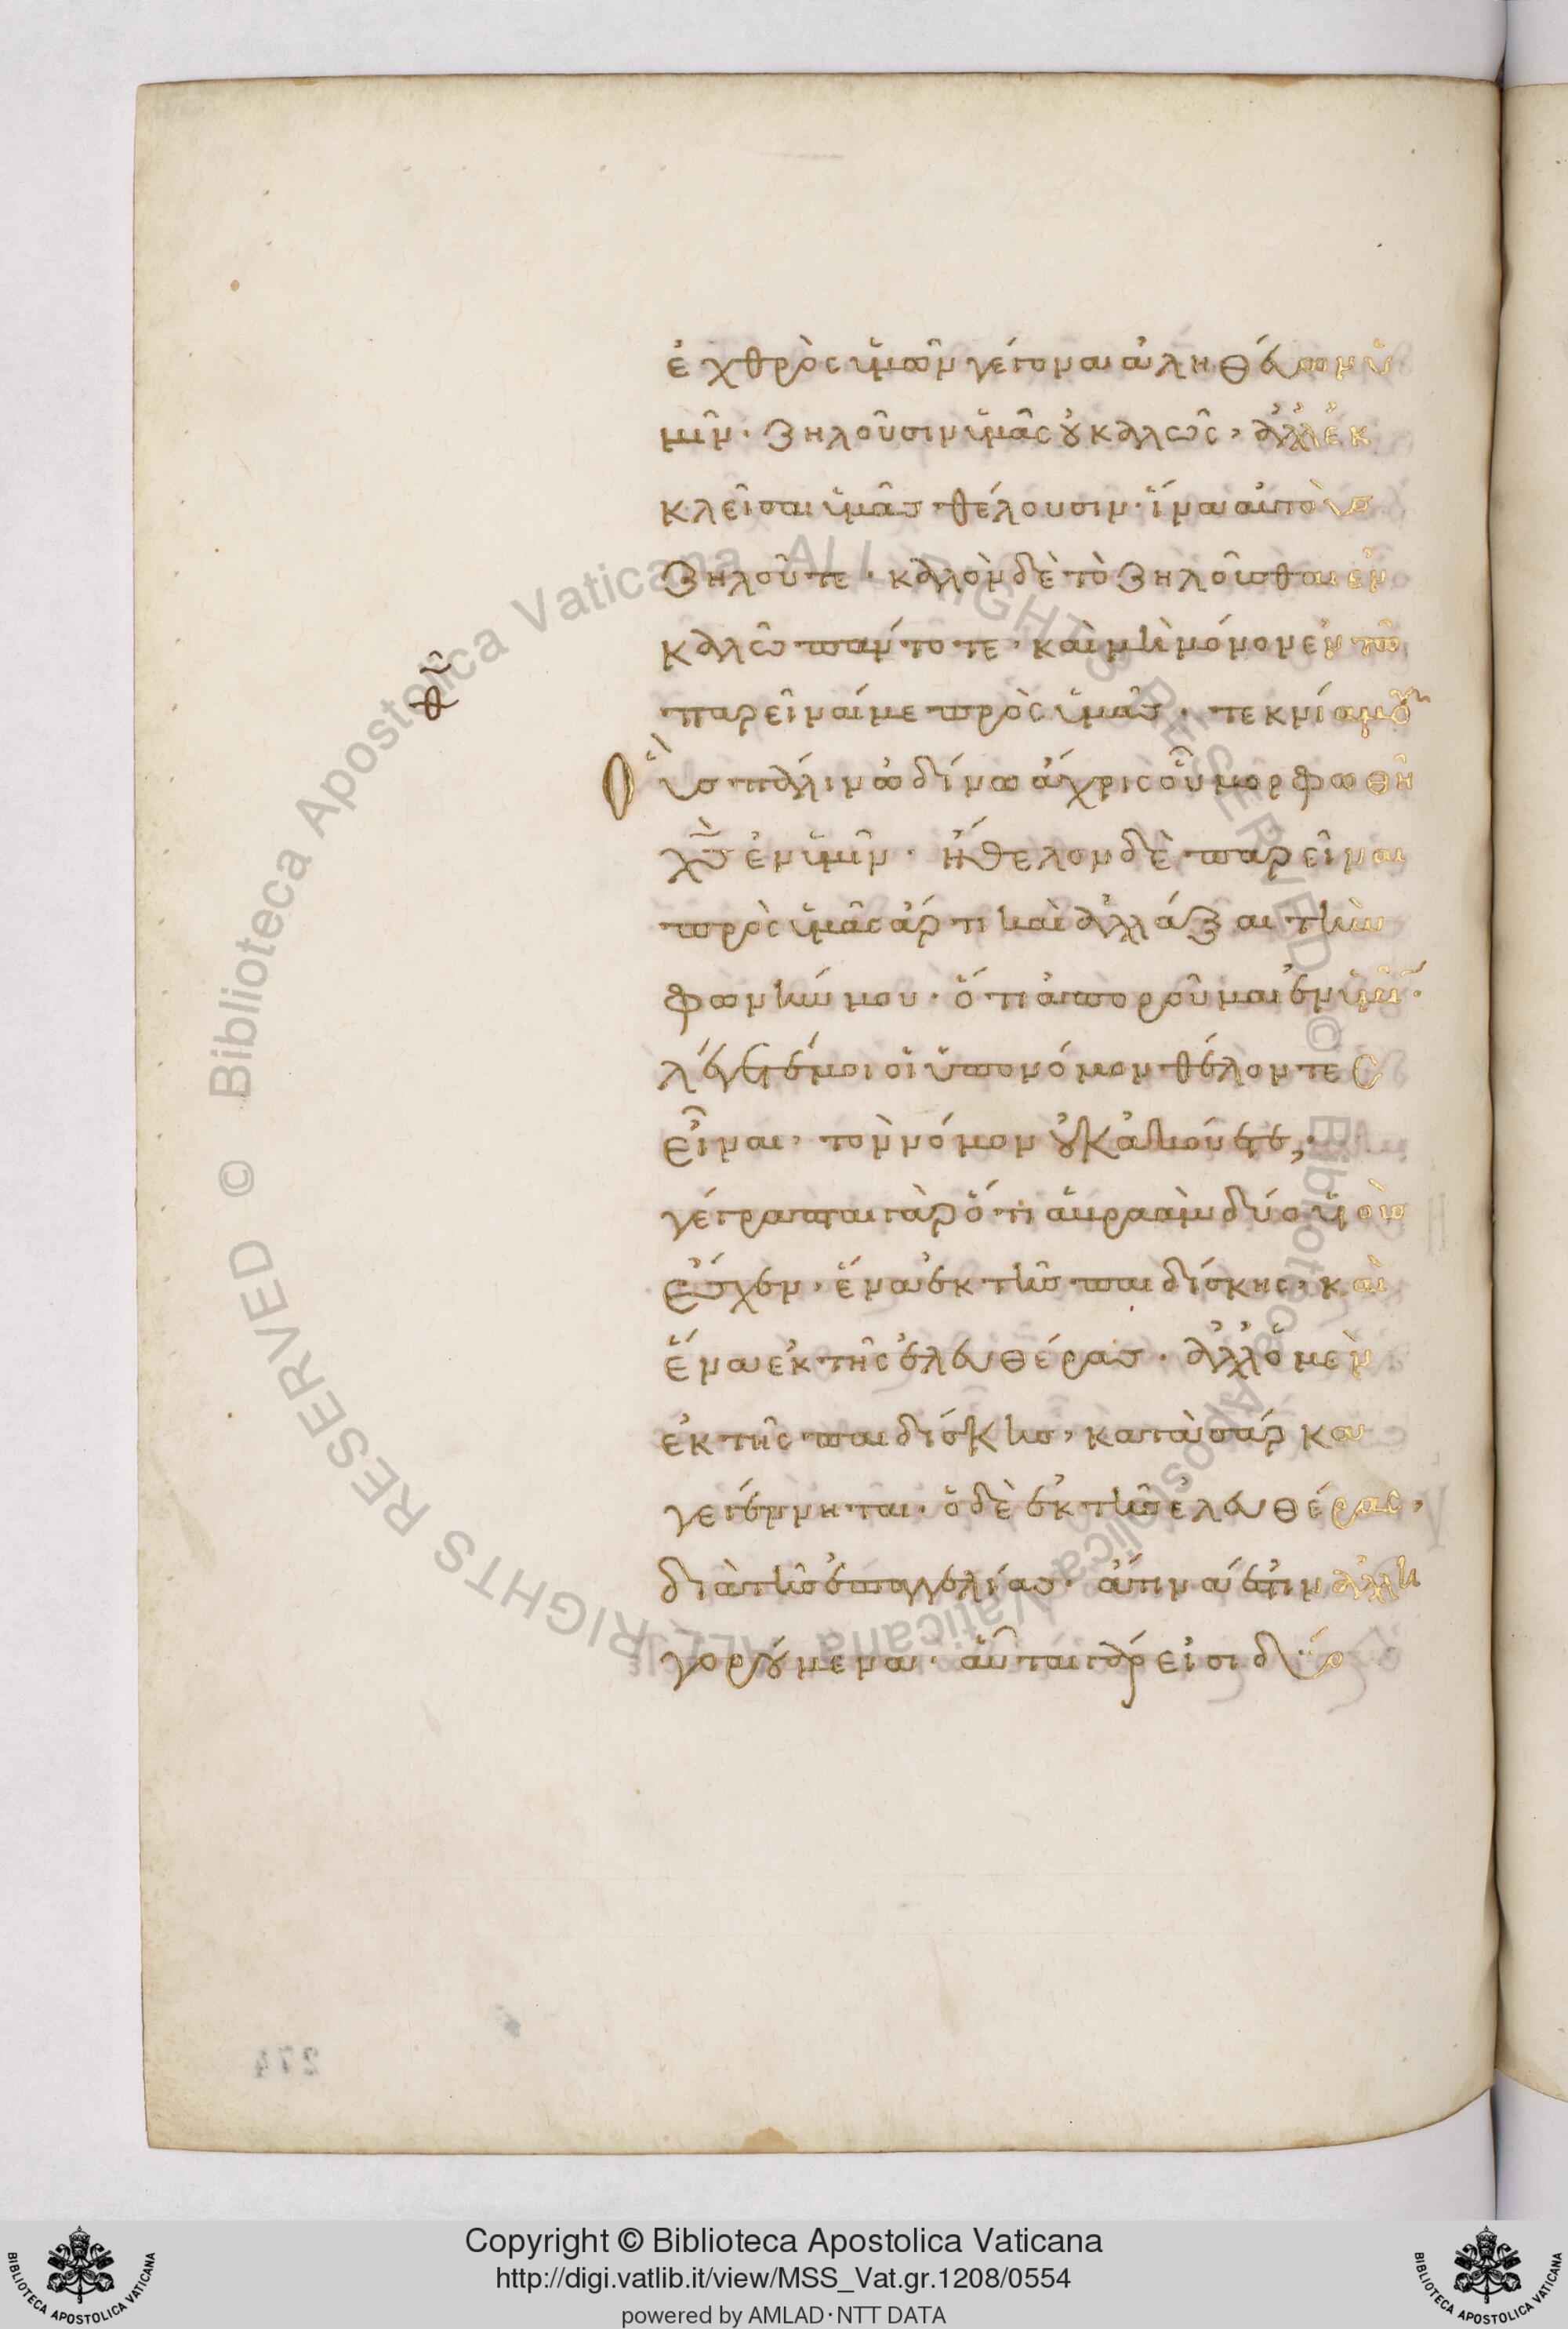 ἐχθρὸς ὑμῶν γέγονα ἀληθεύων ὑ
μῖν· ζηλοῦσιν ὑμᾶς οὐ καλῶς, ἀλλ' ἐκ
κλεῖσαι ὑμᾶς θέλουσιν· ἵνα αὐτοὺς
ζηλοῦτε· καλὸν δὲ τὸ ζηλοῦσθαι ἐν
καλῶ πάντοτε, καὶ μὴ μόνον ἐν τῶ
παρεῖναί με πρὸς ὑμᾶς· τεκνία μου
Οὓς πάλιν ὠδίνω ἄχρις οὗ μορφωθῆ
χς ἐν ὑμῖν· ἤθελον δὲ παρεῖναι
πρὸς ὑμᾶς ἄρτι καὶ ἀλλάξαι τὴν
φωνήν μου· ὅτι ἀποροῦμαι ἐν ὑμῖν·
λέγετέ μοι οἱ ὑπὸ νόμον θέλοντες
εἶναι, τὸν νόμον οὐκ ἀκούετε;
γέγραπται γὰρ ὅτι ἀβραὰμ δύο υἱοὺς
ἔσχεν, ἕνα ἐκ τῆς παιδίσκης, καὶ
ἕνα ἐκ τῆς ἐλευθέρας· ἀλλ' ὁ μὲν
ἐκ τῆς παιδίσκης, κατὰ σάρκα
γεγέννηται· ὁ δὲ ἐκ τῆς ἐλευθέρας,
διὰ τῆς ἐπαγγελίας· ἅτινά ἐστιν ἀλλη
γορούμενα· αὗται γάρ εἰσι δύο
274
Copyright © Biblioteca Apostolica Vaticana
http://digi.vatlib.it/view/MSS_Vat.gr.1208/0554
powered by AMLAD·NTT DATA
BIBLIOTECA APOSTOLICA VATICANA
BIBLIOTECA APOSTOLICA VATICANA
© Biblioteca Apostolica Vaticana ALL RIGHTS RESERVED
© Biblioteca Apostolica Vaticana ALL RIGHTS RESERVED